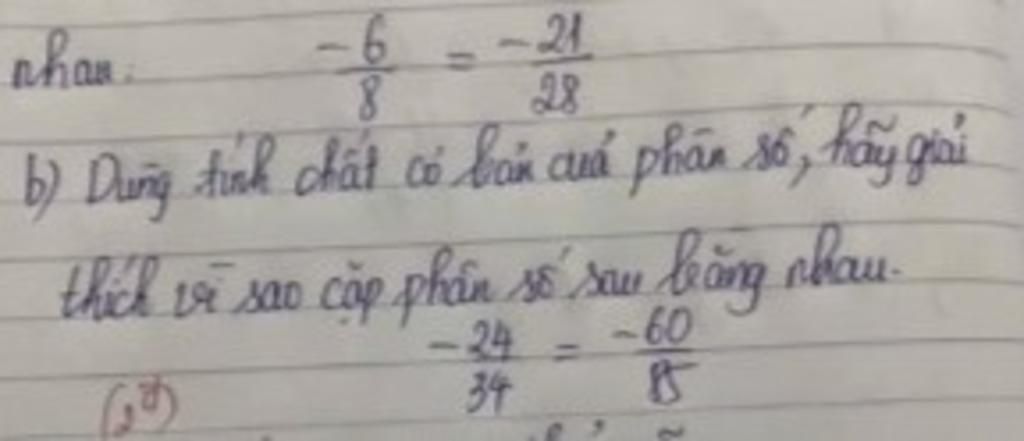 nhau. -6/8 = -21/28
b) Dùng tính chất cơ bản của phân số, hãy giải
thích vì sao cặp phân số sau bằng nhau.
-24/34 = -60/85